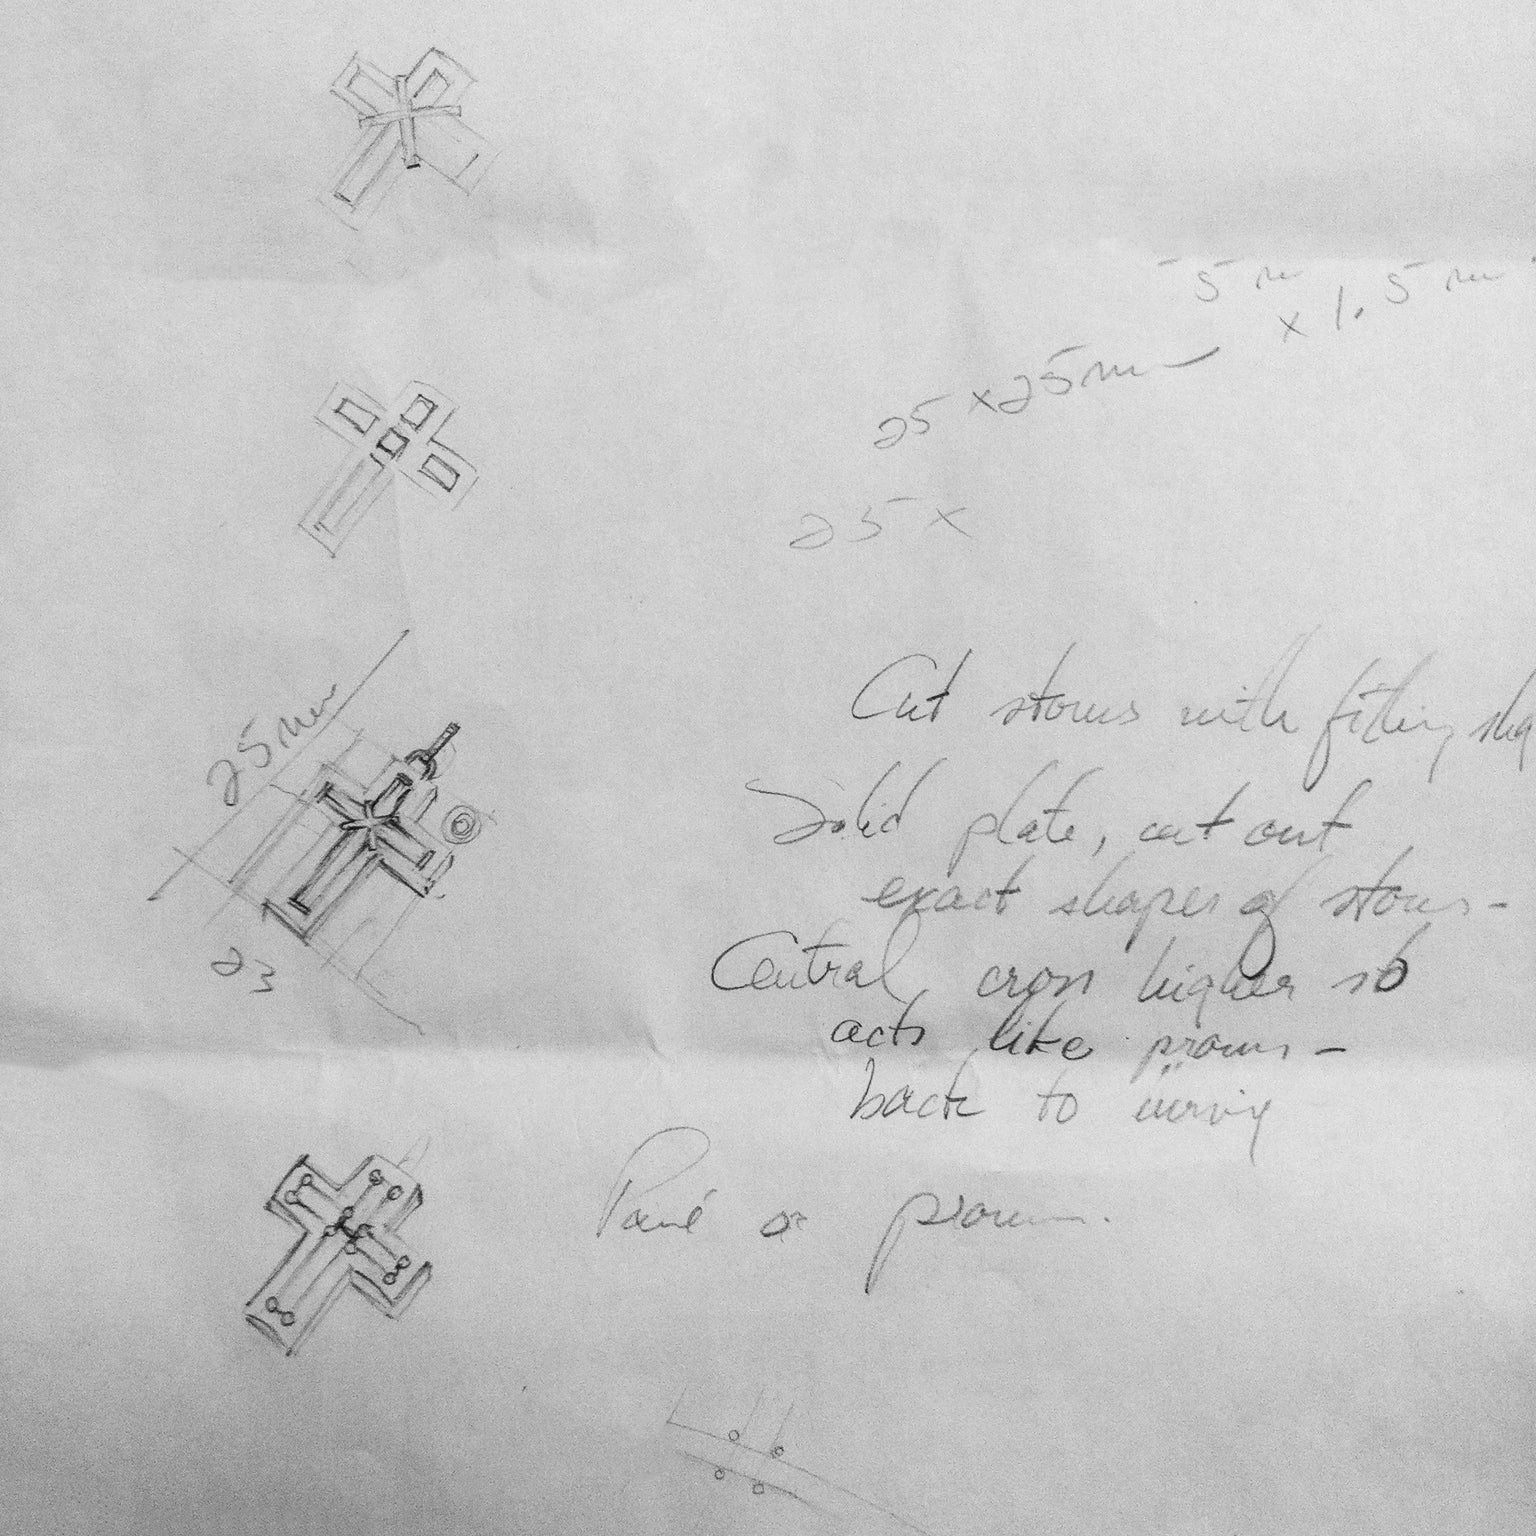 5m
x 1.5m
25 x 25m
25 x
Cut stones with fitting sha
Solid plate, cut out
exact shapes of stones -
Central cross higher so
acts like prongs -
back to
25mm
23
Pavé or prongs.